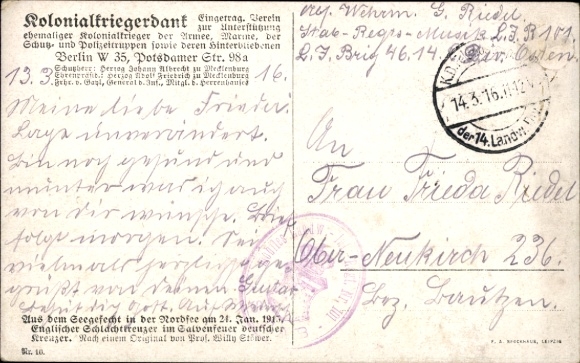 Kolonialkriegerdank Eingetrag. Verein
zur Unterstützung
ehemaliger Kolonialkrieger der Armee, Marine, der
Schutz- und Polizeitruppen sowie deren Hinterbliebenen
Berlin W 35, Potsdamer Str. 98a
Schutzherr: Herzog Johann Albrecht zu Mecklenburg
Ehrenpräsid.: Herzog Adolf Friedrich zu Mecklenburg
Frhr. v. Gayl, General d. Inf., Mitgl. d. Herrenhauses
13.3. 16.
Meine liebe Frieda!
Lage unverändert.
Bin noch gesund und
munter was ich auch
von dir wünsche. Brief
folgt morgen. Sei
vielmals herzlich ge-
grüßt von deinem Gustav
Behüt dich Gott. Auf
Aus dem Seegefecht in der Nordsee am 24. Jan. 1915.
Englischer Schlachtkreuzer im Salvenfeuer deutscher
Kreuzer. Nach einem Original von Prof. Willy Stöwer.
Nr. 10.
Wehrm. G. Riedel
Stab-Regts-Musik L.J.R 101.
L.J. Brig 46. 14. Div. Osten.
14.3.16. 
der 14. Landw.
An
Frau Frieda Riedel
Ober-Neukirch 236.
Bez. Bautzen.
F. A. BROCKHAUS, LEIPZIG